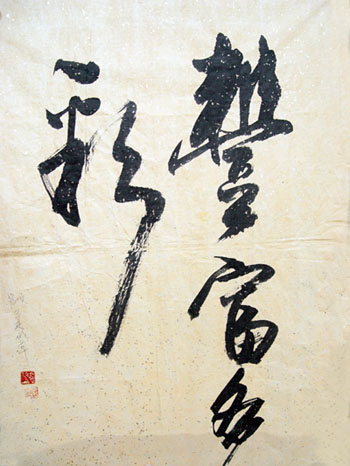 豐富多
彩